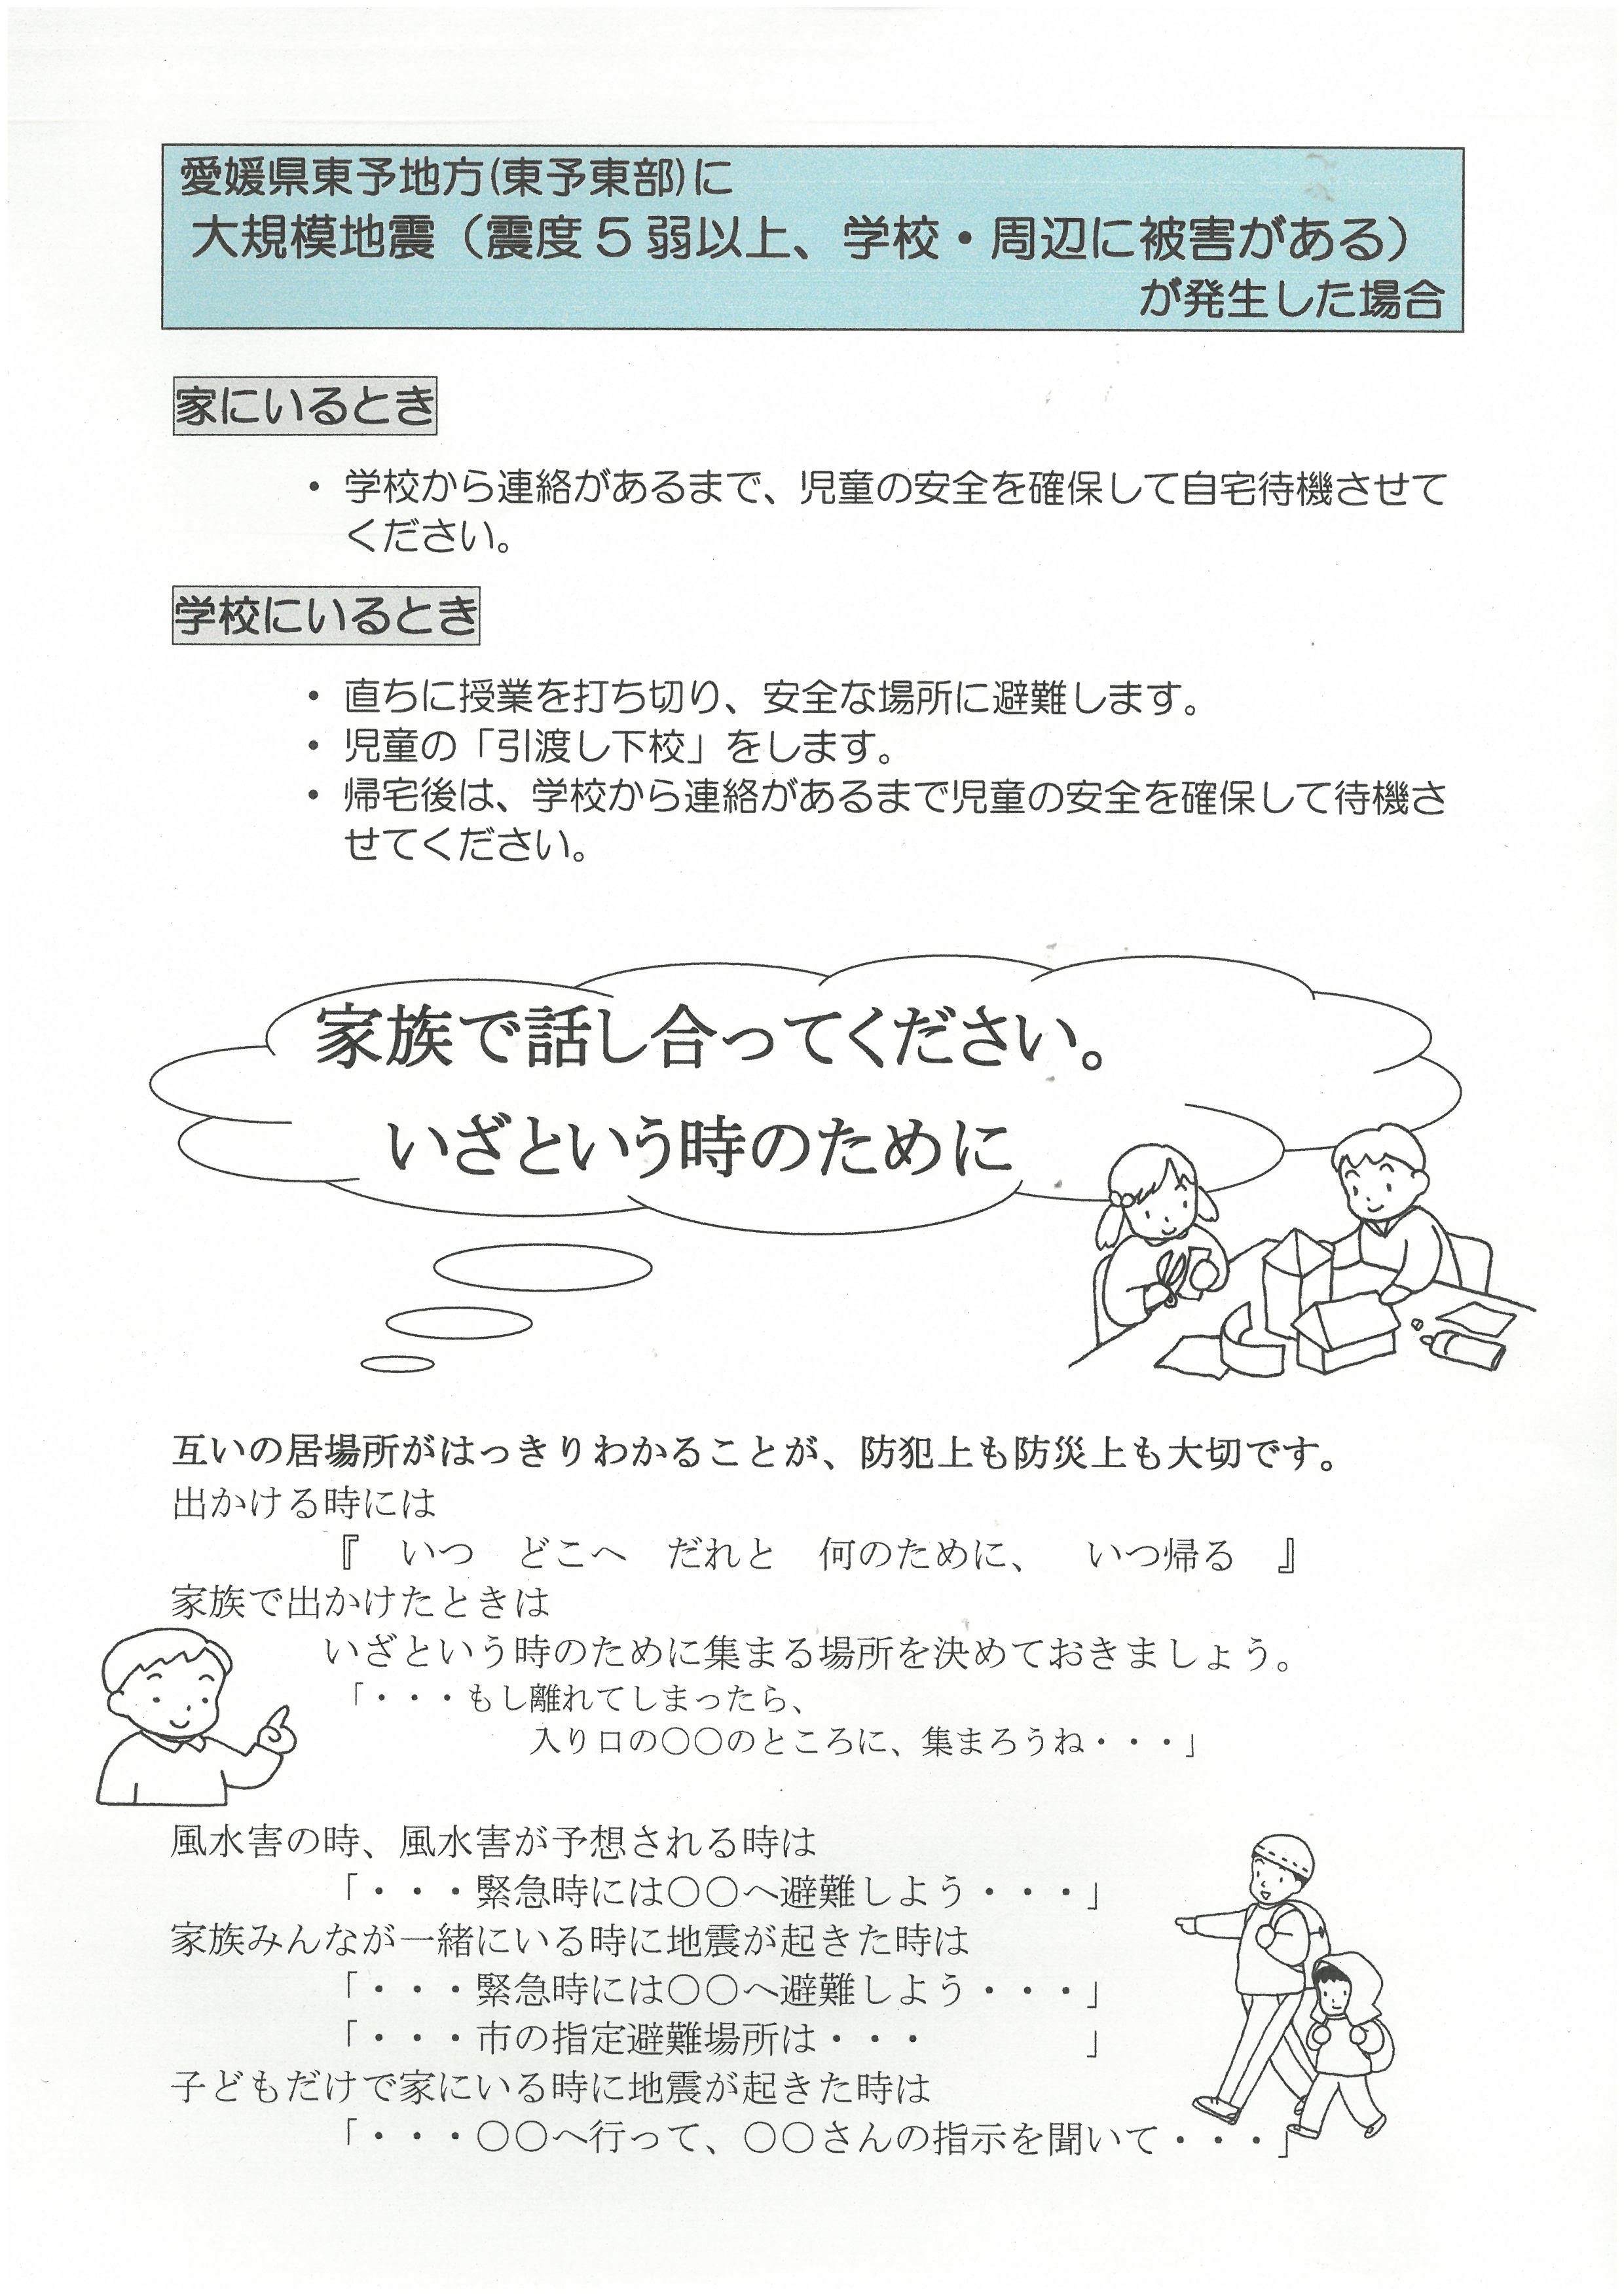 愛媛県東予地方(東予東部)に
大規模地震（震度５弱以上、学校・周辺に被害がある）
が発生した場合
家にいるとき
・学校から連絡があるまで、児童の安全を確保して自宅待機させて
ください。
学校にいるとき
・直ちに授業を打ち切り、安全な場所に避難します。
・児童の「引渡し下校」をします。
・帰宅後は、学校から連絡があるまで児童の安全を確保して待機さ
せてください。
家族で話し合ってください。
いざという時のために
互いの居場所がはっきりわかることが、防犯上も防災上も大切です。
出かける時には
『　いつ　どこへ　だれと　何のために、　いつ帰る　』
家族で出かけたときは
いざという時のために集まる場所を決めておきましょう。
「・・・もし離れてしまったら、
入り口の〇〇のところに、集まろうね・・・」
風水害の時、風水害が予想される時は
「・・・緊急時には〇〇へ避難しよう・・・」
家族みんなが一緒にいる時に地震が起きた時は
「・・・緊急時には〇〇へ避難しよう・・・」
「・・・市の指定避難場所は・・・　　　　」
子どもだけで家にいる時に地震が起きた時は
「・・・〇〇へ行って、〇〇さんの指示を聞いて・・・」